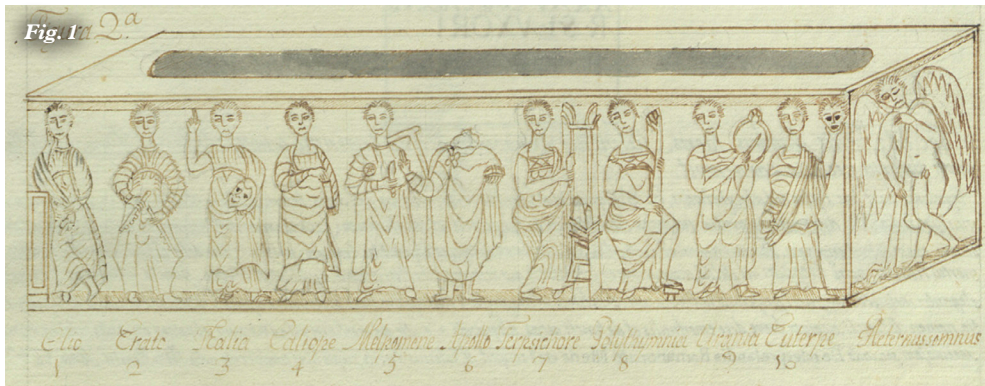 Fig. 1
Figura 2.ª
Clio Erato Thalia Caliope Melpomene Apollo Terpsichore Polythymnia Urania Euterpe Aeternus somnus
1 2 3 4 5 6 7 8 9 10